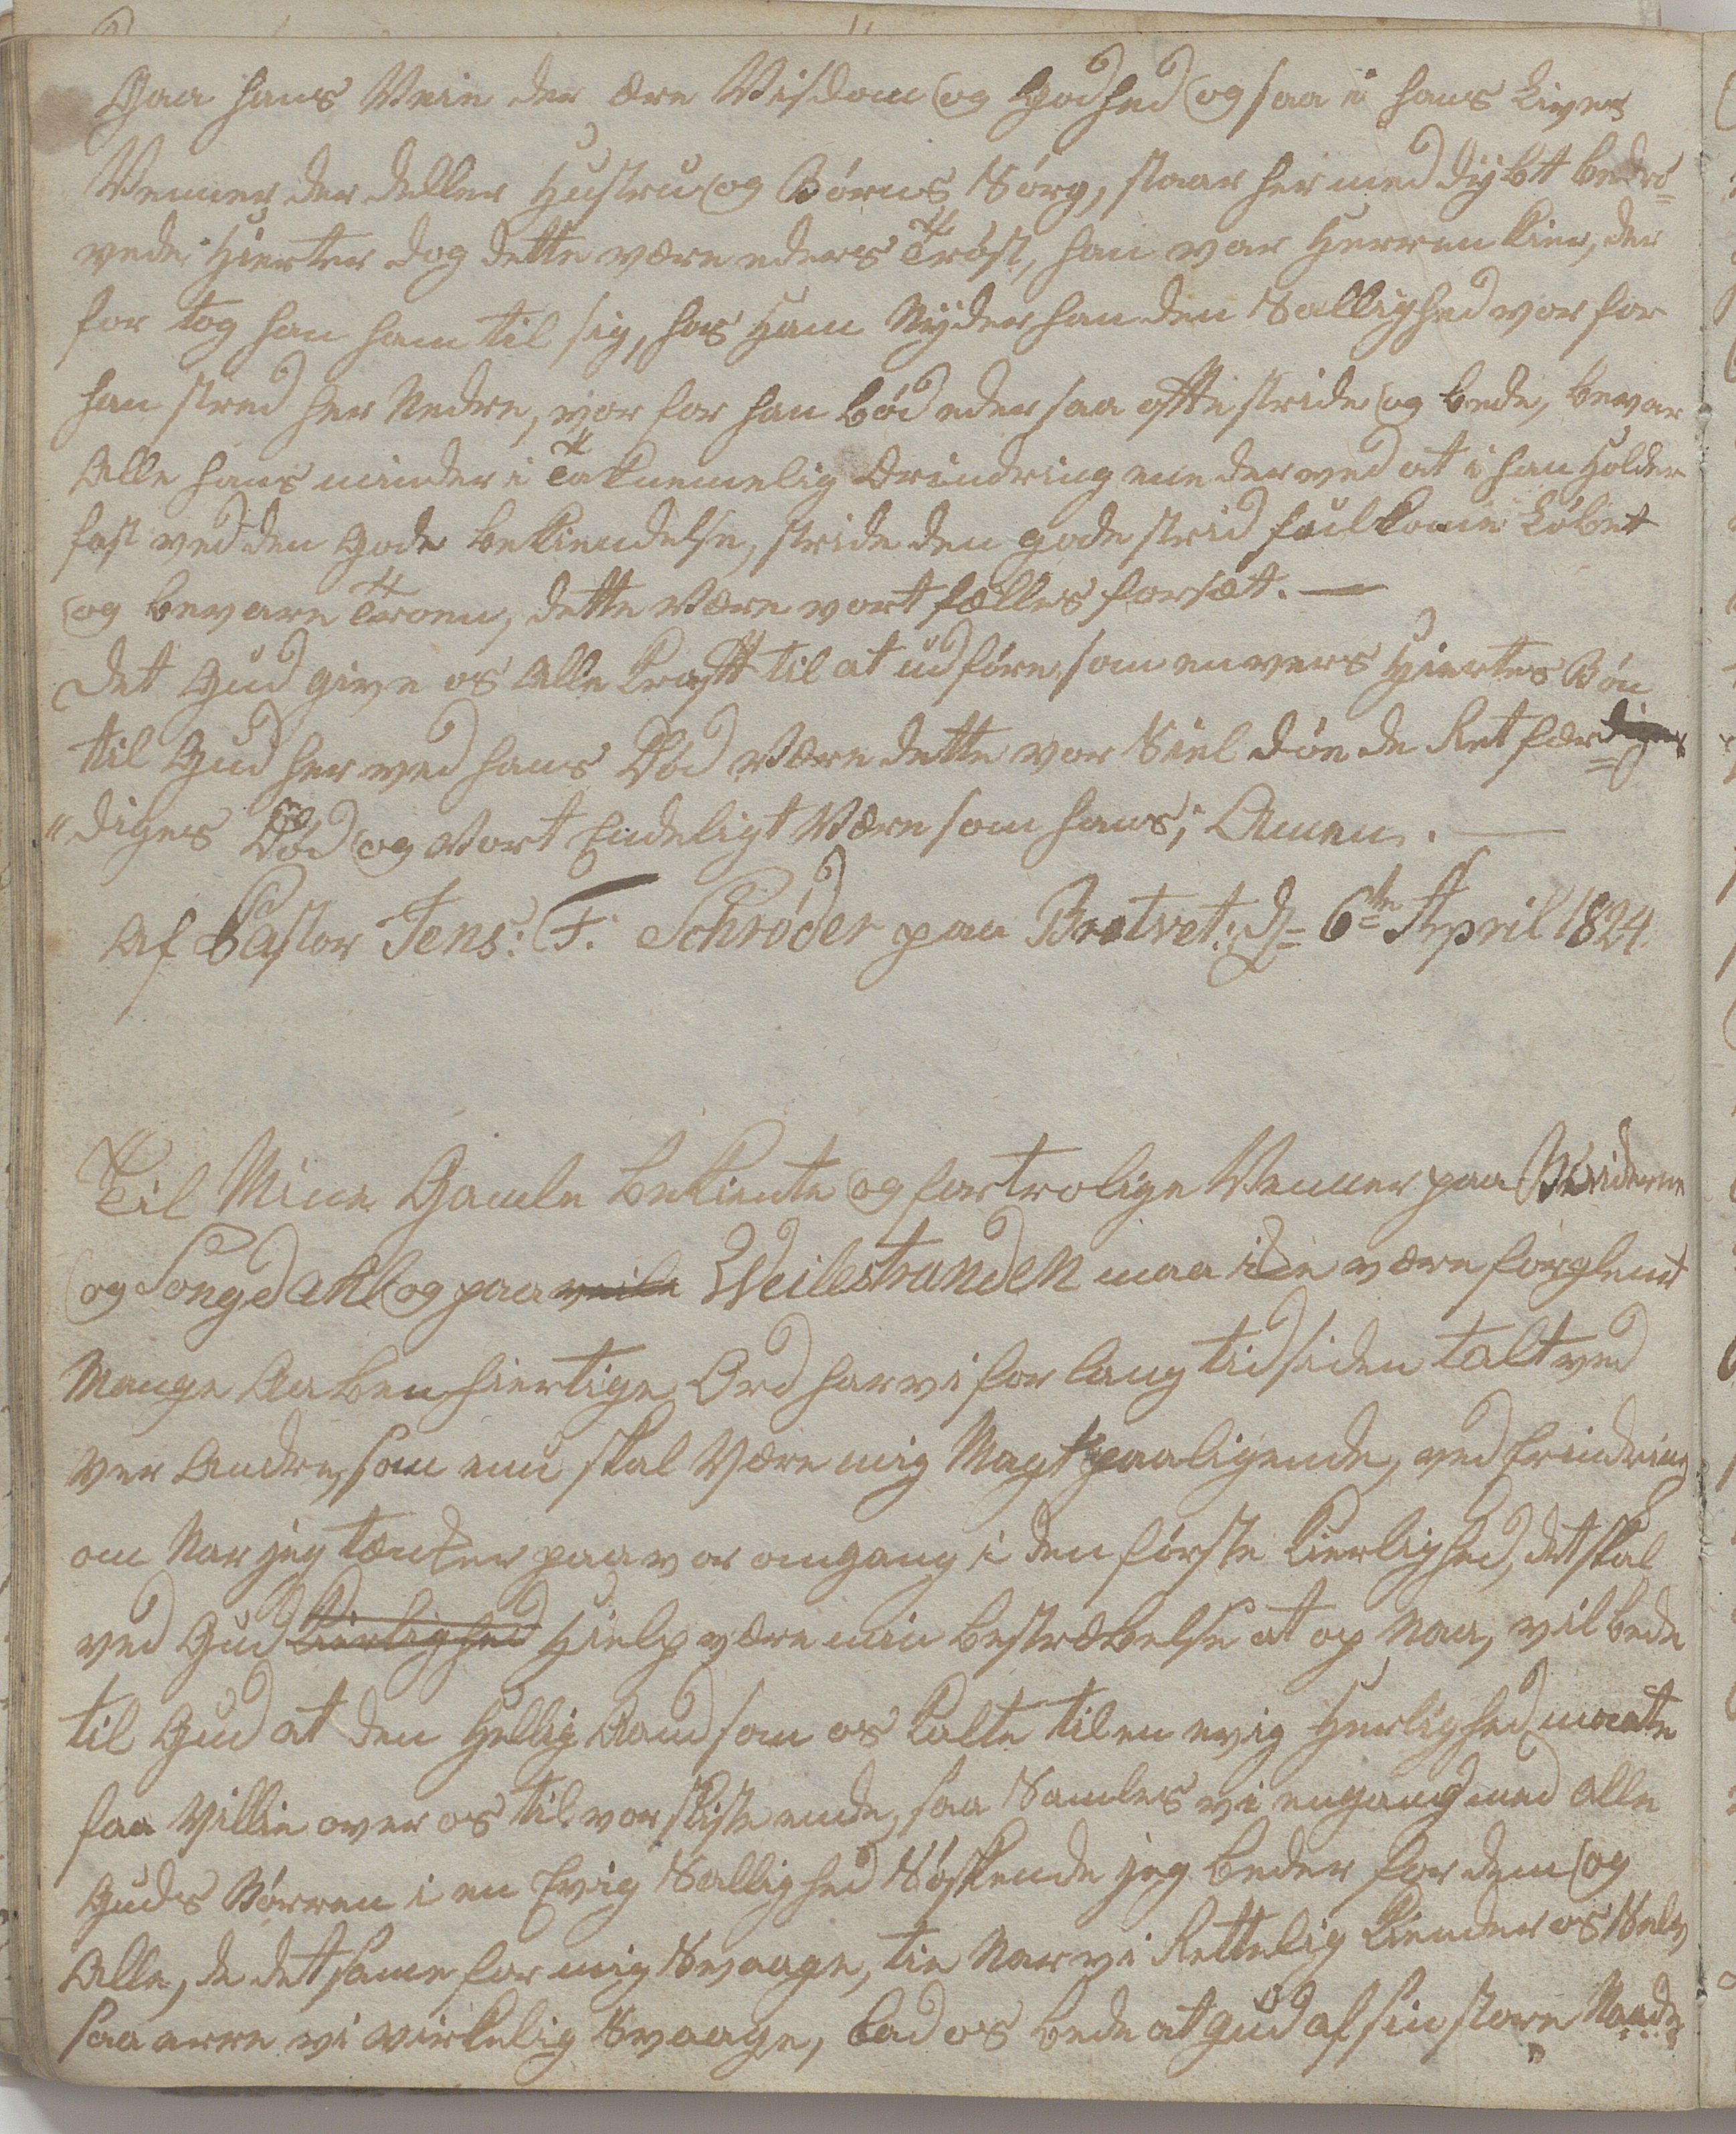 Paa hans Veie der ære Visdom og Godhed og saa i hans Livs
Venner der deller Hustru og Børns Sorg, staar her med dybt bedrø-
vede Hierter dog dette være eders Trøst, han var Herren kier, der
for tog han ham til sig, hos Ham Nyder han den Sallighed vor for
han stred her Nedre, vor for han bød eder saa ofte stride og bede, bevar
Alle hans minder i Taknemelig Erindring ene der ved at i han Holder
fast ved den Gode bekiendelse, stride den gode strid fuldkome Løbet
og bevare Troen, dette være vort fælles forsæt. —
Det Gud give os Alle kraft til at udføre, som envers Hiertes Bøn
til Gud her ved hans Død være dette vor Siel døe de Retfær
"diges Død og vort Endeligt være som hans; Amen. —
Af Pastor Jens: F: Schrøder paa Bratvet: d= 6te April 1824
Til Mine Gamle bekiente og fortrolige Venner paa
og Songdahl og paa veile Weilestranden maa icke være forglemt
Mange Aabenhiertige Ord har vi for lang tid siden talt ved
ver Andre, som enu skal være mig Magtpaaligende, ved Erindring
om Nar jeg tænker paa vor omgang i den første kierlighed, det skal
ved Gud kierlighed Hielp være min bestræbelse at op Naa, vil bede
til Gud at den Hellig Aand som os kalte til en evig Herlighed maatte
faa Villie over os til vor siste ende, saa Samles vi engang med alle
Guds Børren i en Evig Sallighed Søskende jeg beder for dem og
Alle, de det same for mig Svaage, tie Nar vi Rettelig kiender os Selv
saa erre vi virkelig Svaage, Lad os bede at Gud af sin store Naade